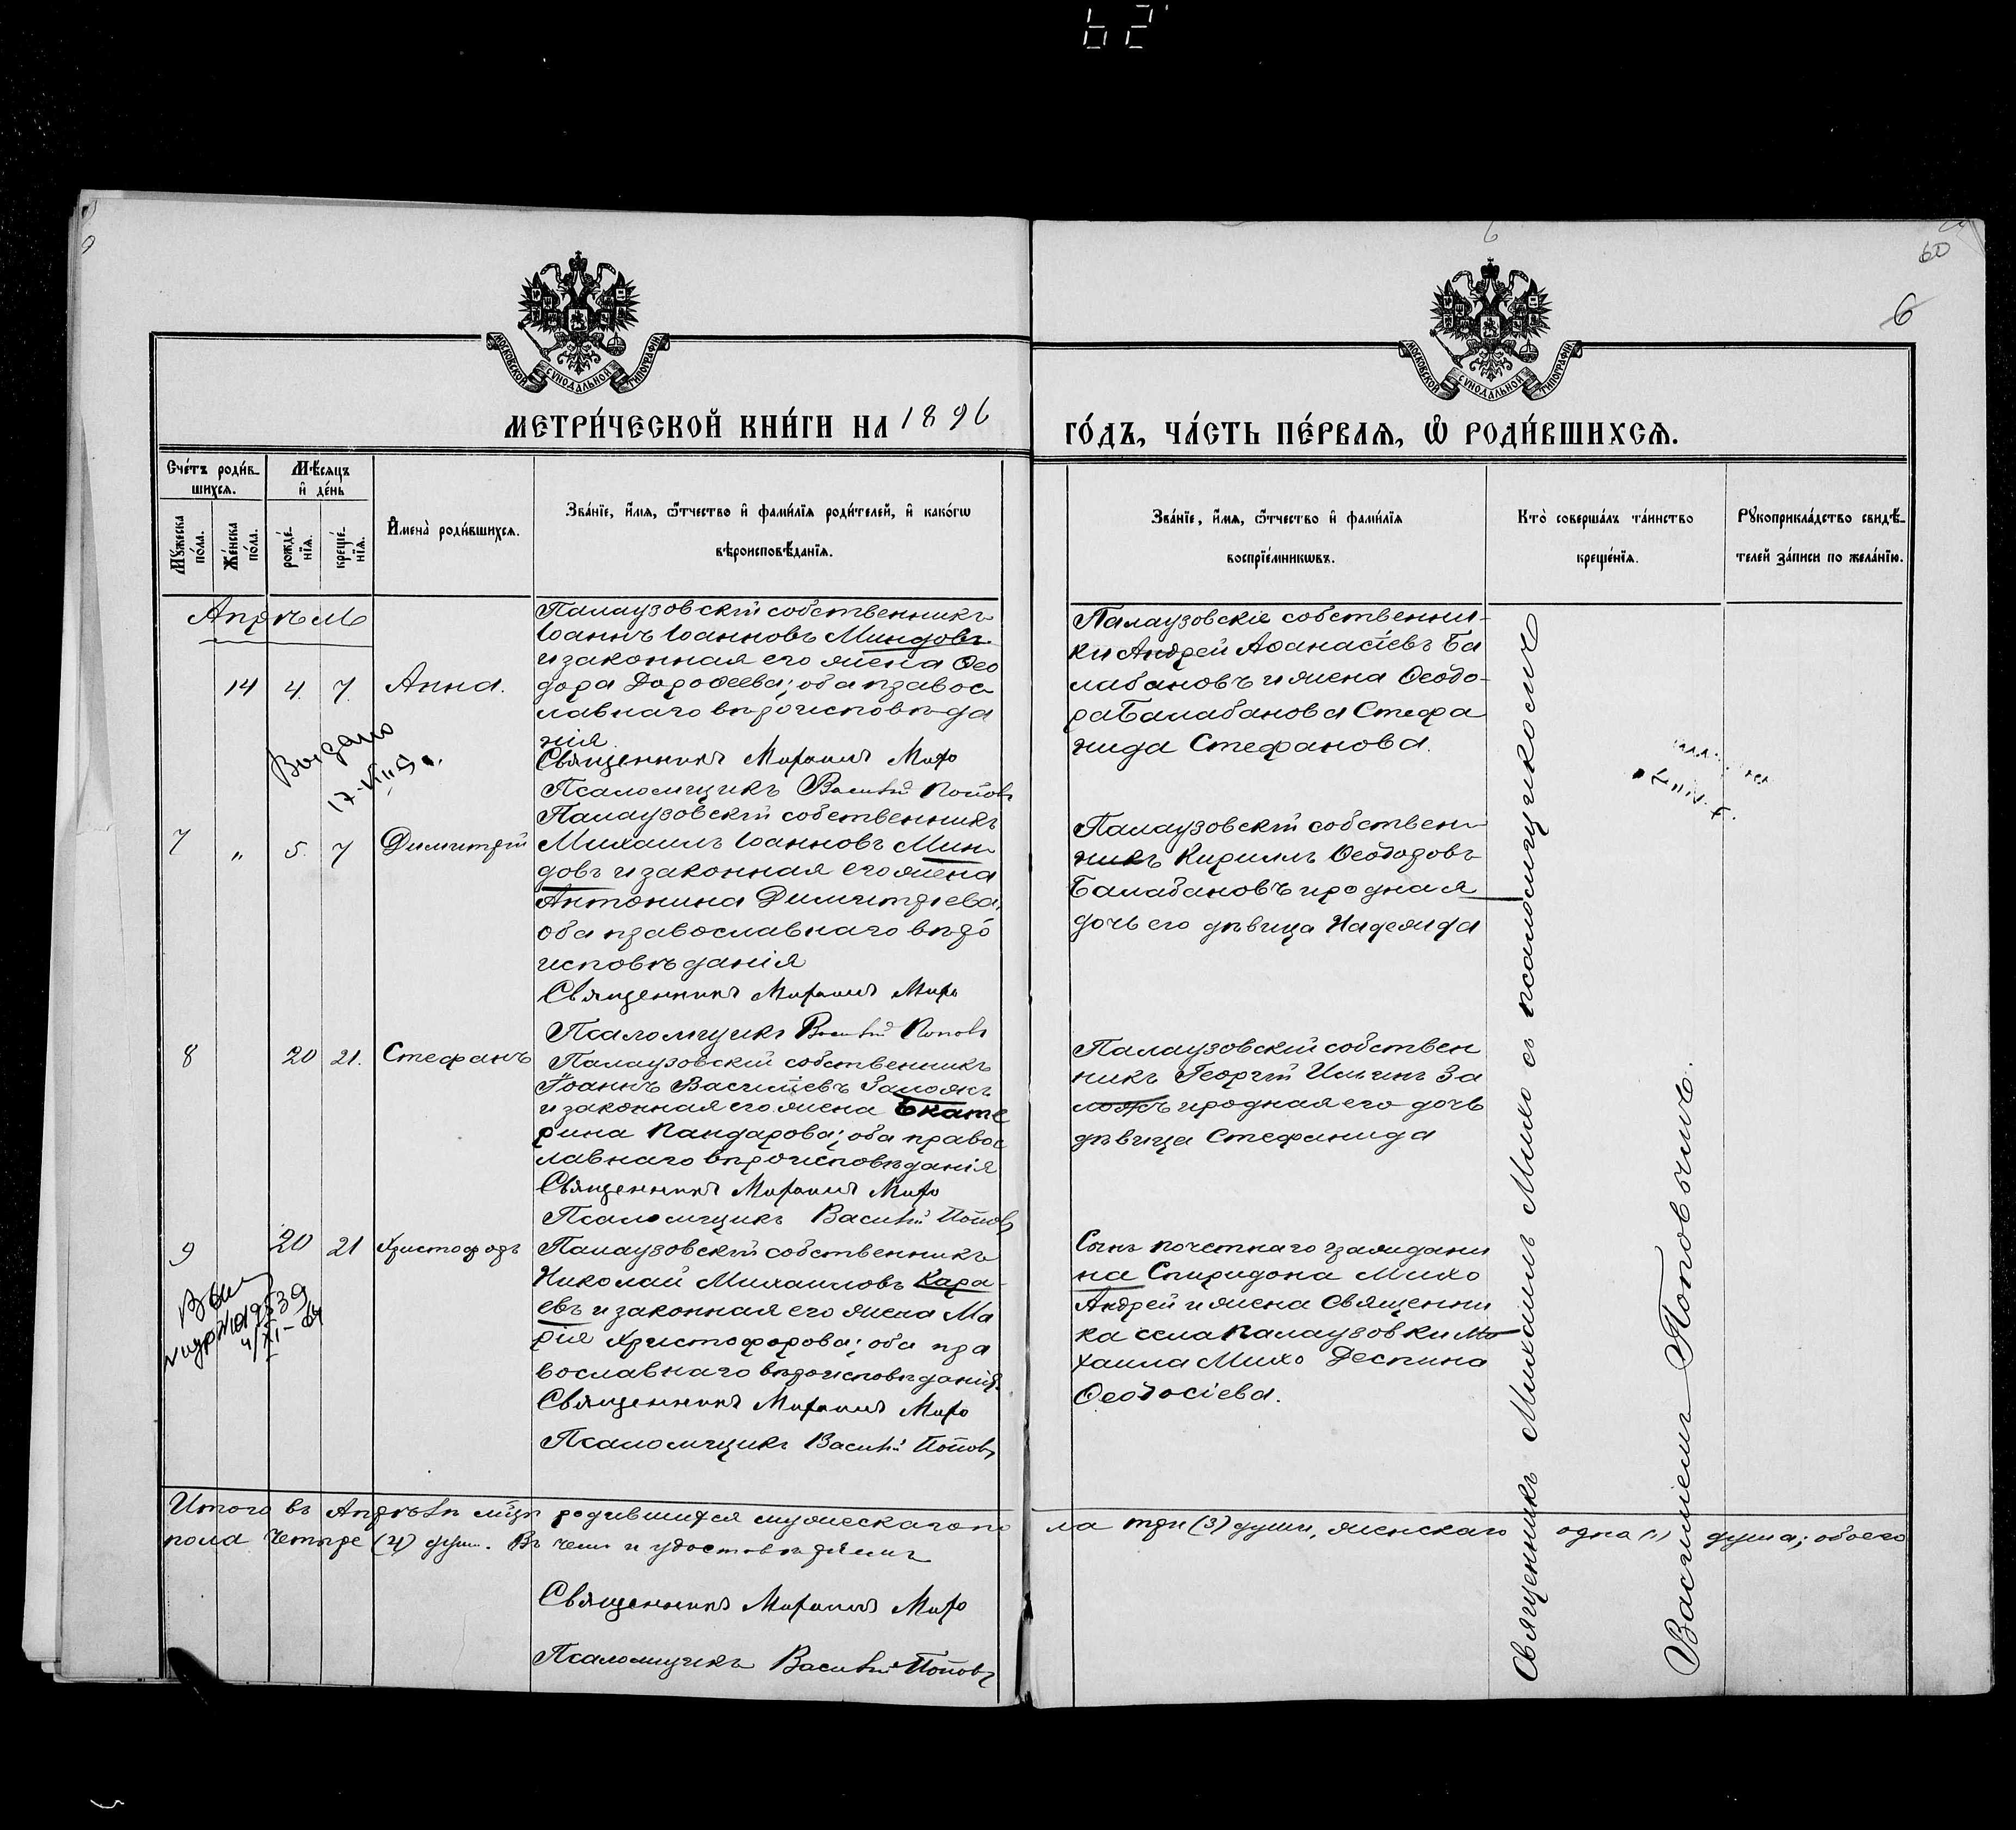 62
60
6
МОСКОВСКОЙ СѴНОДАЛЬНОЙ ТИПОГРАФІИ
МОСКОВСКОЙ СѴНОДАЛЬНОЙ ТИПОГРАФІИ
МЕТРИ́ЧЕСКОЙ КНИ́ГИ НА 1896
ГО́ДЪ, ЧА́СТЬ ПЕ́РВАѦ, Ѽ РОДИ́ВШИХСѦ.
Сче́тъ роди́в-
шихсѧ.
Мѣ́сѧцъ
и҆ де́нь
Мꙋ́жеска
по́ла.
Же́нска
по́ла.
рожде́-
нїѧ.
креще́-
нїѧ.
И҆мена̀ роди́вшихсѧ.
Зва́нїе, и҆́мѧ, ѻ҆́тчество и҆ фами́лїѧ роди́телей, и҆ како́гѡ
вѣроисповѣ́данїѧ.
Зва́нїе, и҆́мѧ, ѻ҆́тчество и҆ фами́лїѧ
воспрїе́мникѡвъ.
Кто̀ соверша́лъ та́инство
креще́нїѧ.
Рꙋкоприкла́дство свидѣ́-
телей за́писи по жела́нїю.
Апрѣль
14 4. 7. Анна.
Палаузовскій собственникъ
Іоаннъ Іоанновъ Миндовъ
и законная его жена Ѳео
дора Дороѳеева; оба правос
лавнаго вѣроисповѣда
нія.
Священникъ Михаилъ Михо
Псаломщикъ Василій Поповъ
Палаузовскіе собственни-
ки Андрей Аѳанасіевъ Ба
лабановъ и жена Ѳеодо-
ра Балабанова Стефа
нида Стефанова.
Выдано
7 " 5. 7 Димитрій
Палаузовскій собственникъ
Михаилъ Іоанновъ Мин-
довъ и законная его жена
Антонина Димитріева,
оба православнаго вѣро
исповѣданія
Священникъ Михаилъ Михо
Псаломщикъ Василій Поповъ
Палаузовскій собствен-
никъ Кириллъ Ѳеодоровъ
Балабановъ и родная
дочь его дѣвица Надежда
8 20 21. Стефанъ
Палаузовскій собственникъ
Іоаннъ Василіевъ Заложъ
и законная его жена Екате
рина Пандарова; оба правос
лавнаго вѣроисповѣданія
Священникъ Михаилъ Михо
Псаломщикъ Василій Поповъ
Палаузовскій собствен
никъ Георгій Ильинъ За
ложъ и родная его дочь
дѣвица Стефанида
9 20 21 Христофоръ
Палаузовскій собственникъ
Николай Михаиловъ Кара-
евъ и законная его жена Ма
рія Христофорова; оба пра
вославнаго вѣроисповѣданія.
Священникъ Михаилъ Михо
Псаломщикъ Василій Поповъ
Сынъ почетнаго граждани
на Спиридона Михо
Андрей и жена священни
ка села Палаузовки Ми
хаила Михо Деспина
Ѳеодосіева.
Священникъ Михаилъ Михо съ псаломщикомъ
Василіемъ Поповычемъ.
Итого въ Апрѣлѣ м-цѣ родившихся мужескаго по
ла три (3) души, женскаго одна (1) душа; обоего
пола Четыре (4) душ. Въ чемъ и удостовѣряемъ
Священникъ Михаилъ Михо
Псаломщикъ Василій Поповъ